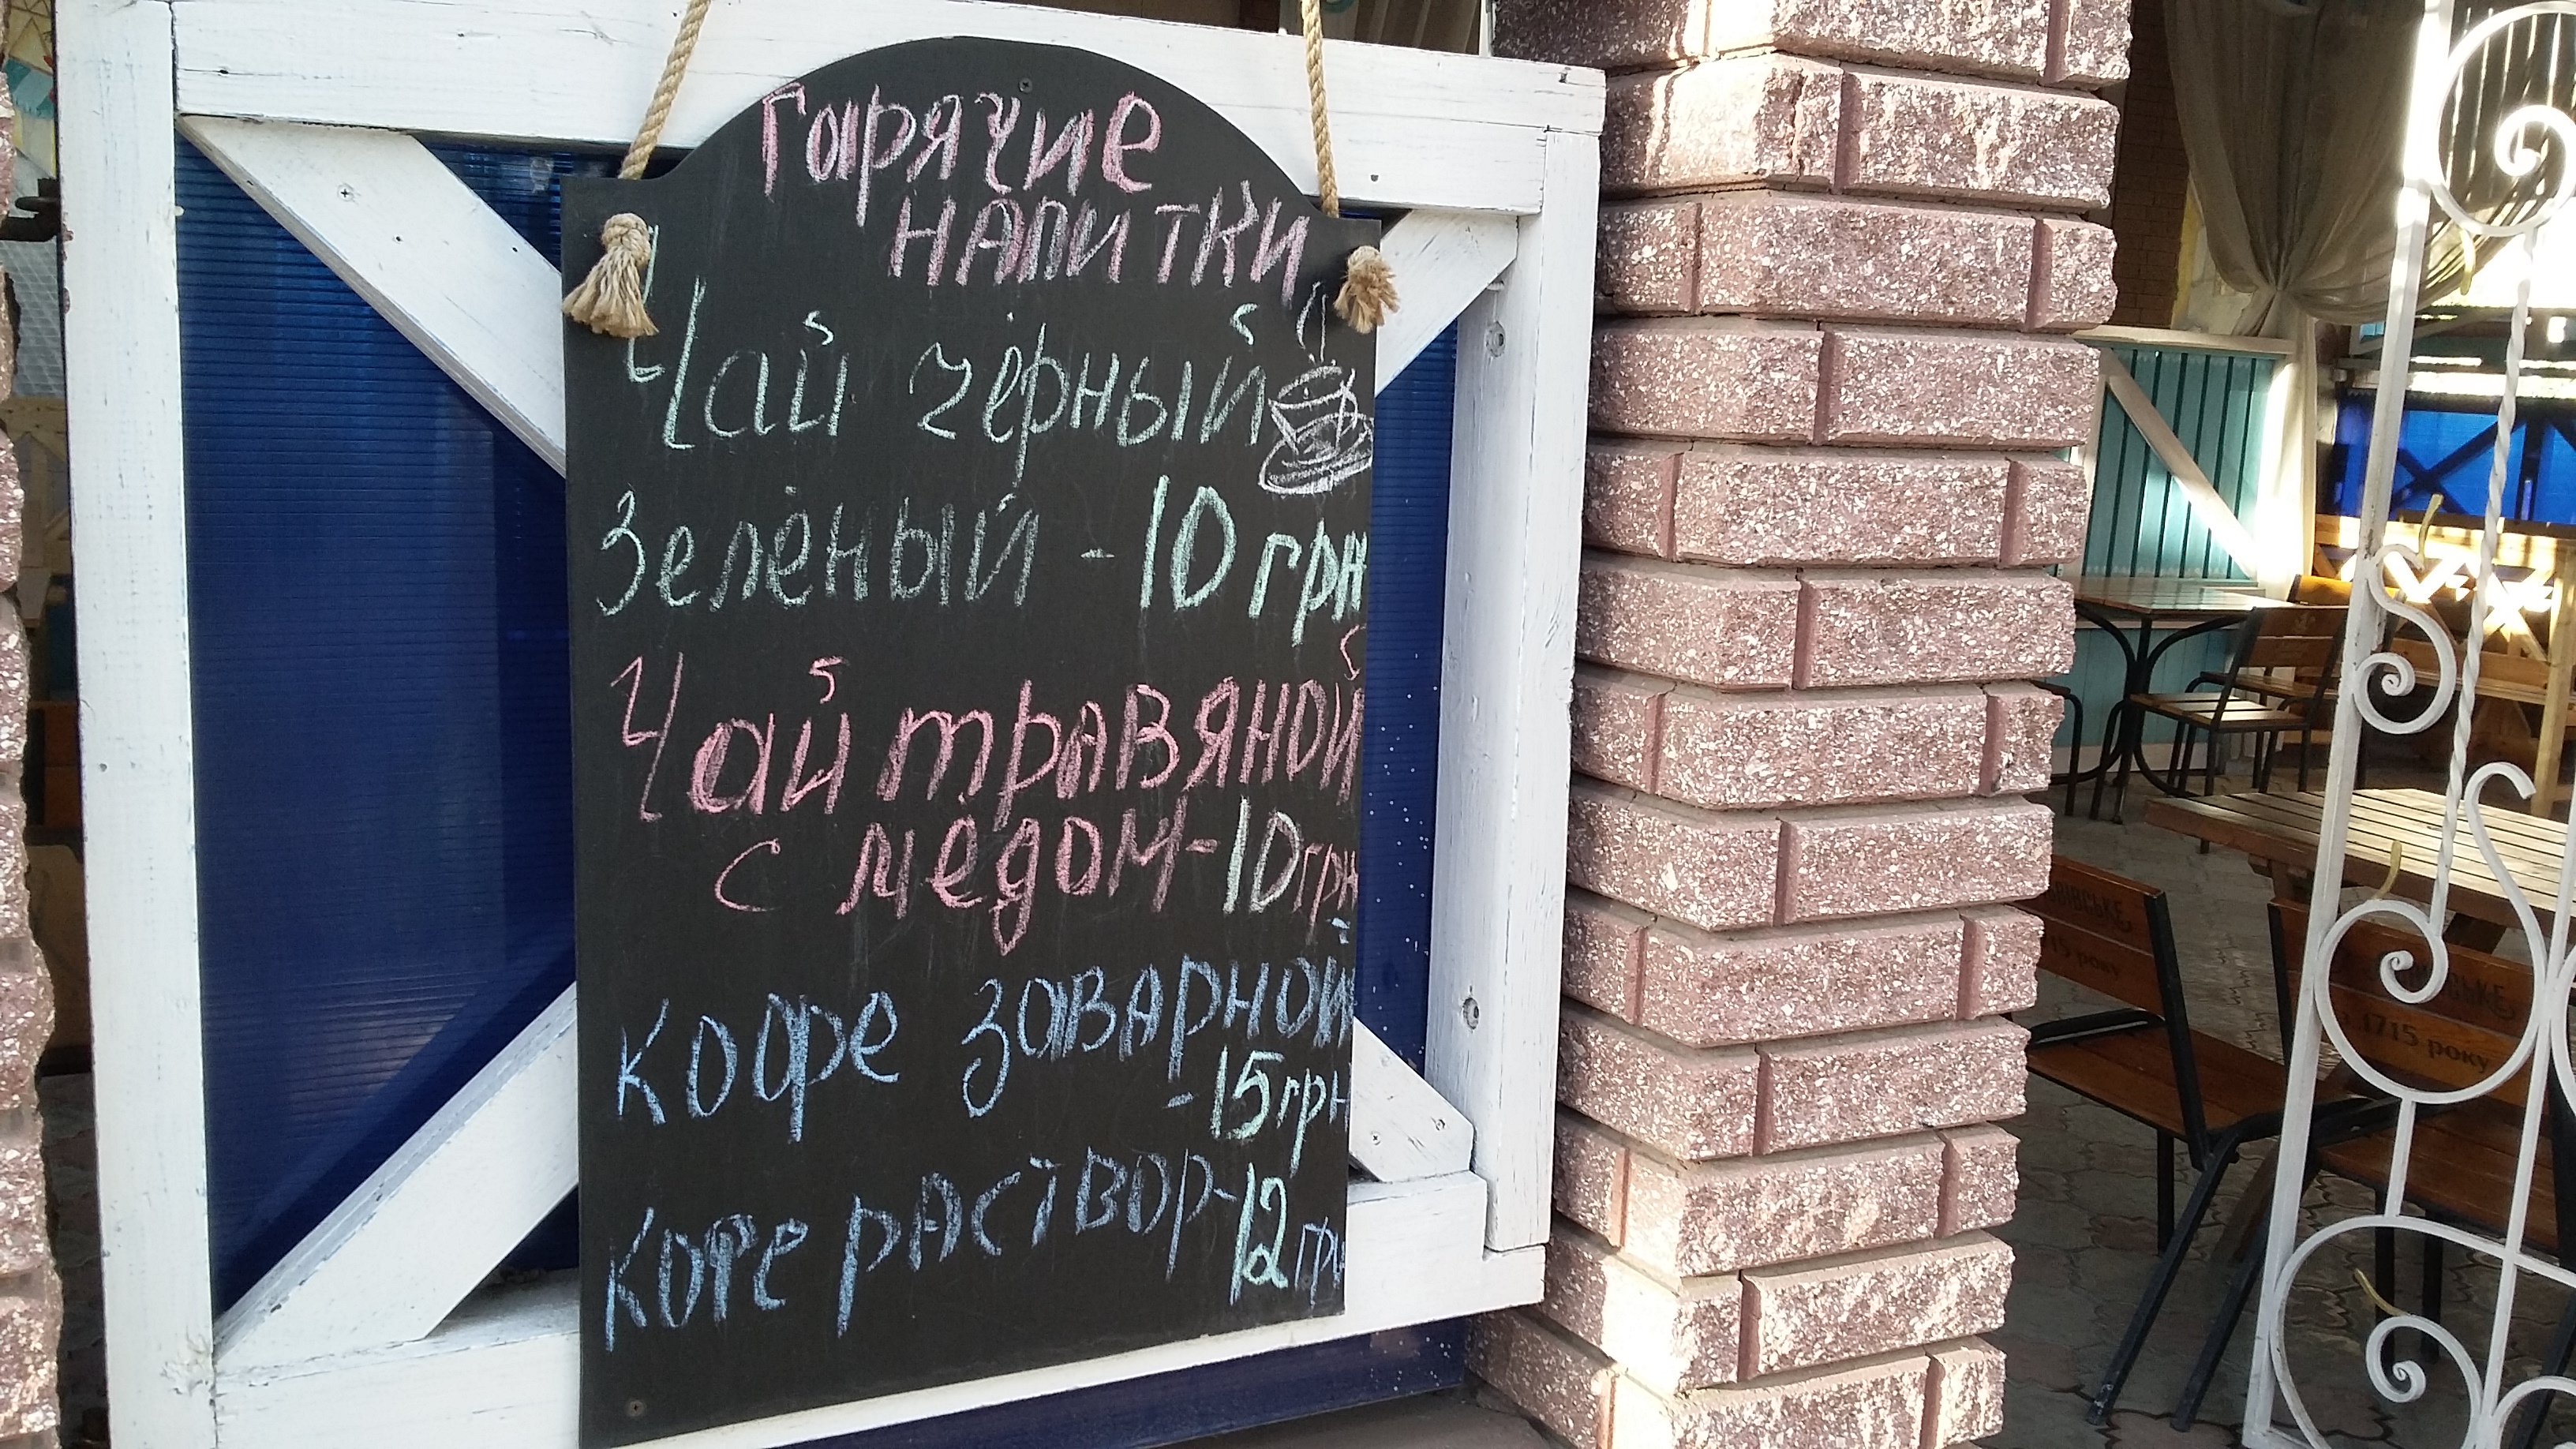 Горячие
напитки
Чай чёрный
Зелёный - 10 грн
Чай травяной
с мёдом - 10 грн
Кофе заварной
- 15 грн
Кофе раствор - 12 грн
1715 року